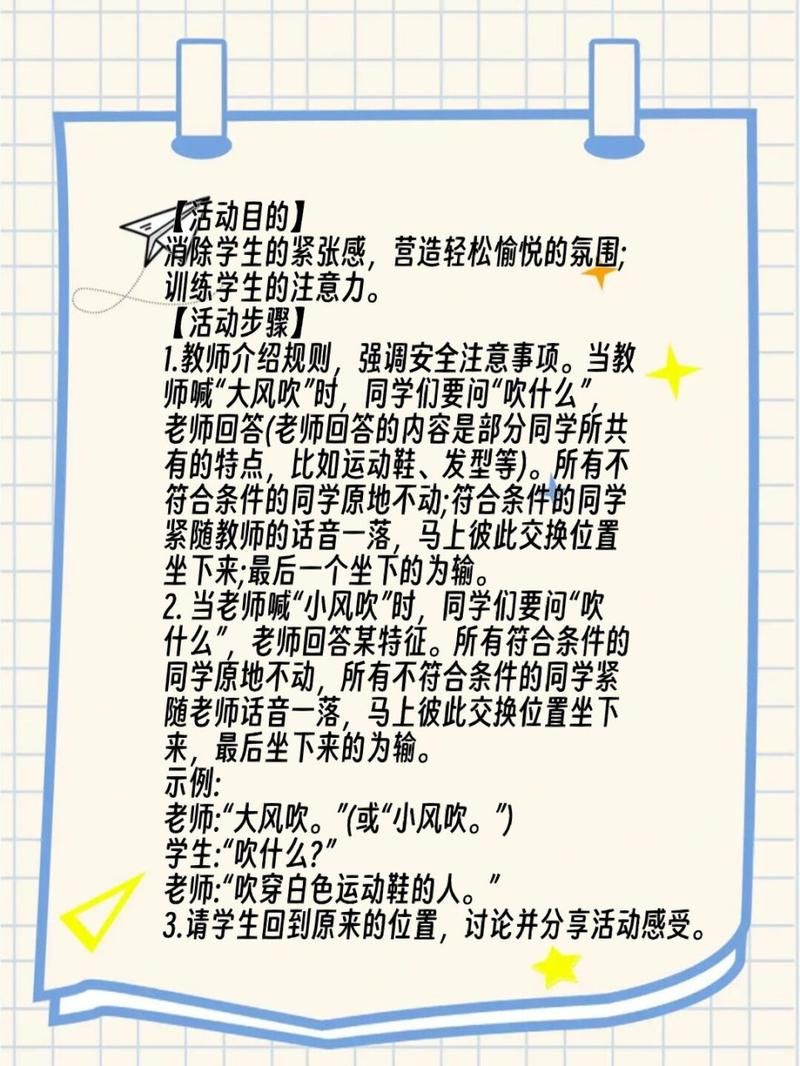 【活动目的】
消除学生的紧张感，营造轻松愉悦的氛围;
训练学生的注意力。
【活动步骤】
1.教师介绍规则，强调安全注意事项。当教
师喊“大风吹”时，同学们要问“吹什么”，
老师回答(老师回答的内容是部分同学所共
有的特点，比如运动鞋、发型等)。所有不
符合条件的同学原地不动;符合条件的同学
紧随教师的话音一落，马上彼此交换位置
坐下来;最后一个坐下的为输。
2. 当老师喊“小风吹”时，同学们要问“吹
什么”，老师回答某特征。所有符合条件的
同学原地不动，所有不符合条件的同学紧
随老师话音一落，马上彼此交换位置坐下
来，最后坐下来的为输。
示例:
老师:“大风吹。”(或“小风吹。”)
学生:“吹什么?”
老师:“吹穿白色运动鞋的人。”
3.请学生回到原来的位置，讨论并分享活动感受。